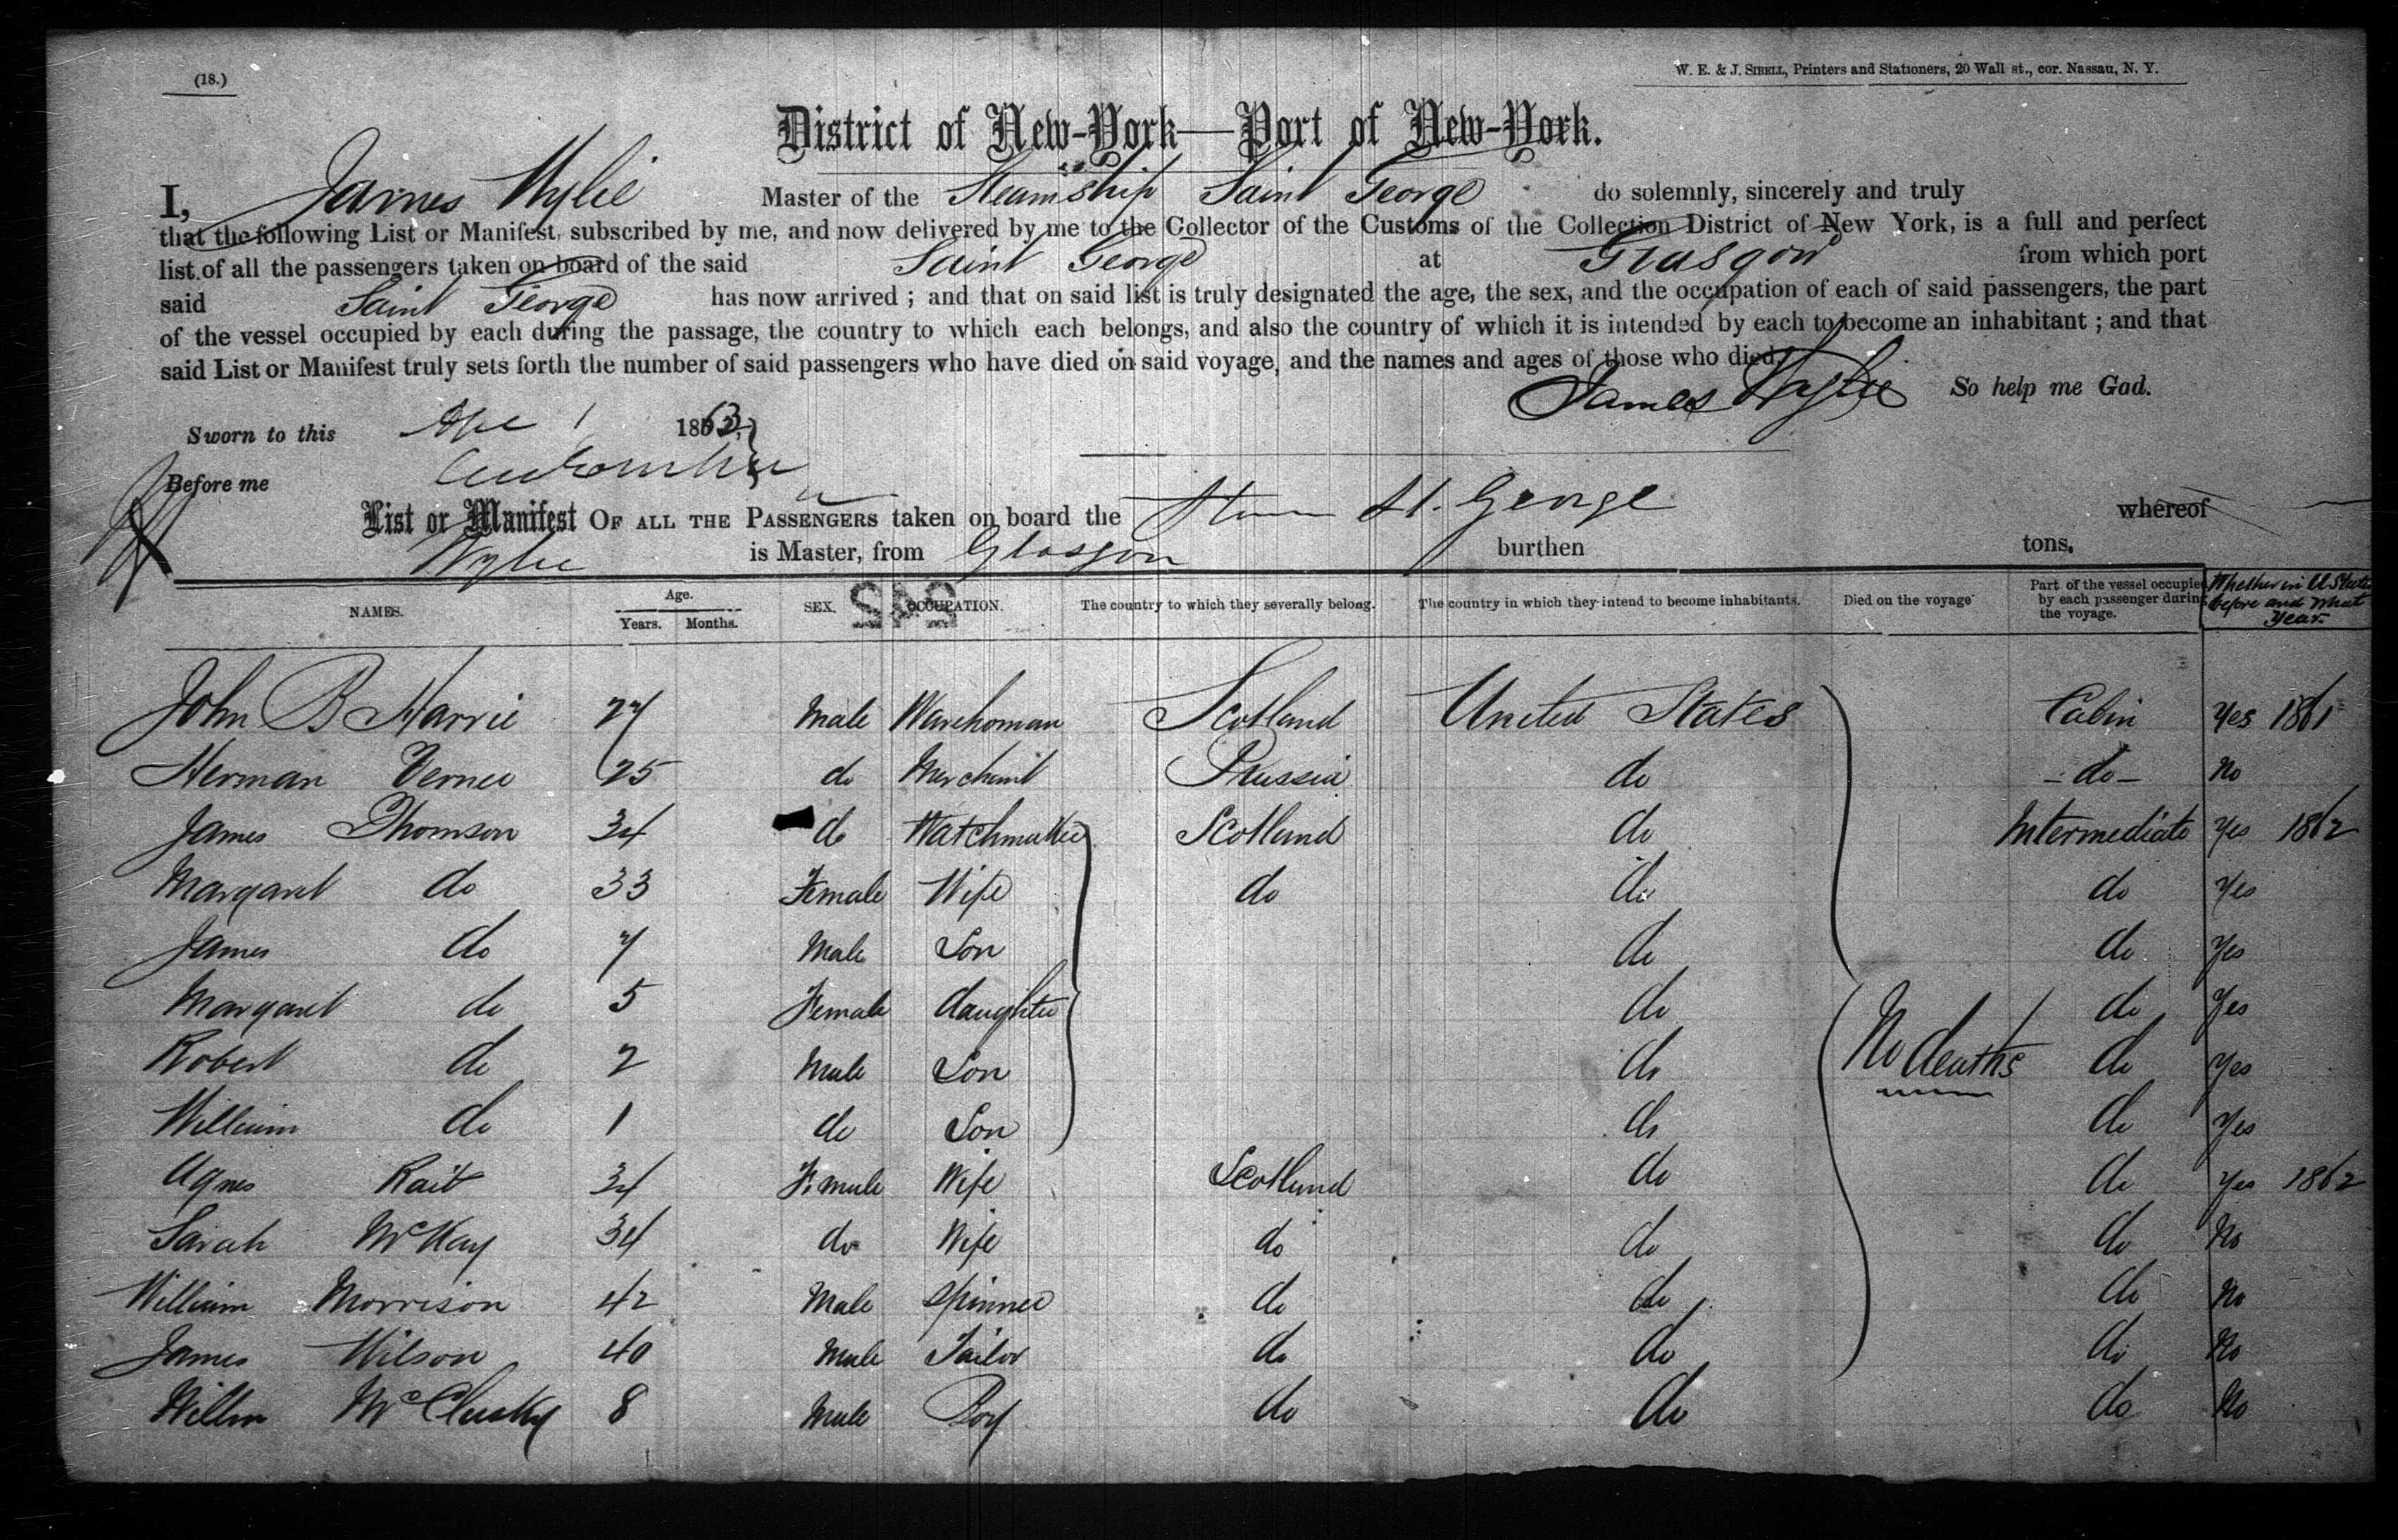 (18.)
W. E. & J. SIBELL, Printers and Stationers, 20 Wall st., cor. Nassau, N. Y.
District of New-York—Port of New-York.
I, James Wylie Master of the Steamship Saint George do solemnly, sincerely and truly
that the following List or Manifest, subscribed by me, and now delivered by me to the Collector of the Customs of the Collection District of New York, is a full and perfect
list of all the passengers taken on board of the said Saint George at Glasgow from which port
said Saint George has now arrived; and that on said list is truly designated the age, the sex, and the occupation of each of said passengers, the part
of the vessel occupied by each during the passage, the country to which each belongs, and also the country of which it is intended by each to become an inhabitant; and that
said List or Manifest truly sets forth the number of said passengers who have died on said voyage, and the names and ages of those who died.
James Wylie So help me God.
Sworn to this Apr 1 1863
Before me
List or Manifest OF ALL THE PASSENGERS taken on board the Steam St. George whereof
Wylie is Master, from Glasgow burthen tons.
NAMES. Age. Years. Months. SEX. OCCUPATION. The country to which they severally belong. The country in which they intend to become inhabitants. Died on the voyage Part of the vessel occupied by each passenger during the voyage. Whether in U States before and what Year.
542
John B Harvie 27 Male Warehoman Scotland United States Cabin Yes 1861
Herman Verner 25 do Merchant Prussia do - do - No
James Thomson 34 do Watchmaker Scotland do Intermediate Yes 1862
Margaret do 33 Female Wife do do do Yes
James do 7 Male Son do do Yes
Margaret do 5 Female daughter do do Yes
Robert do 2 Male Son do No deaths do Yes
William do 1 do Son do do Yes
Agnes Rait 34 Female Wife Scotland do do Yes 1862
Sarah McKay 34 do Wife do do do No
William Morrison 42 Male Spinner do do do No
James Wilson 40 Male Tailor do do do No
Willm McClusky 8 Male Boy do do do No